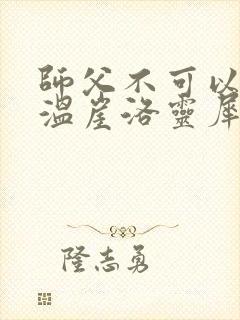 師父不可以
溫崖洛靈犀
隆志勇